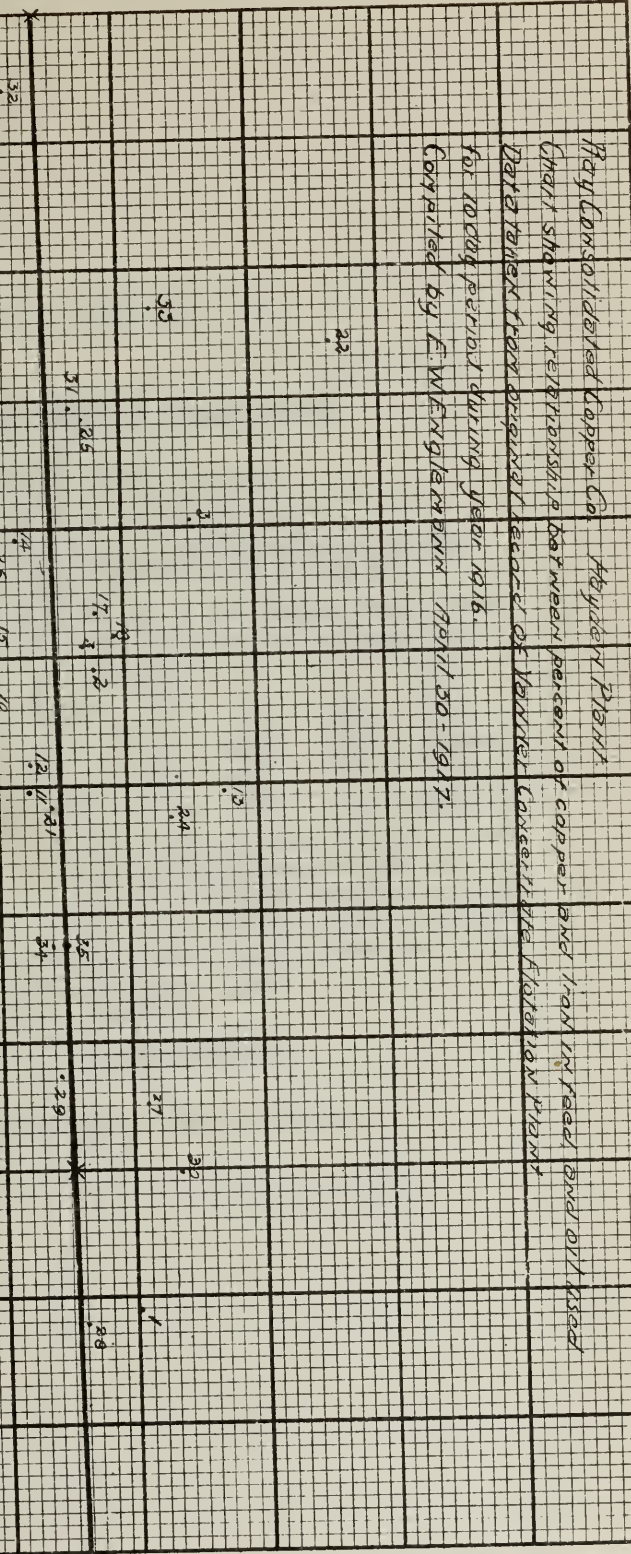 Ray Consolidated Copper Co. Hayden Plant
Chart showing relationship between percent of copper and Iron in feed, and oil used
Data taken from original record of Vanner Concentrate Flotation Plant
for 10 day period during year 1916.
Compiled by E. W. Englemann April 30-1917.
22
33
3
31
25
17
4
2
13
24
14
12
11
21
35
34
27
30
29
1
28
32